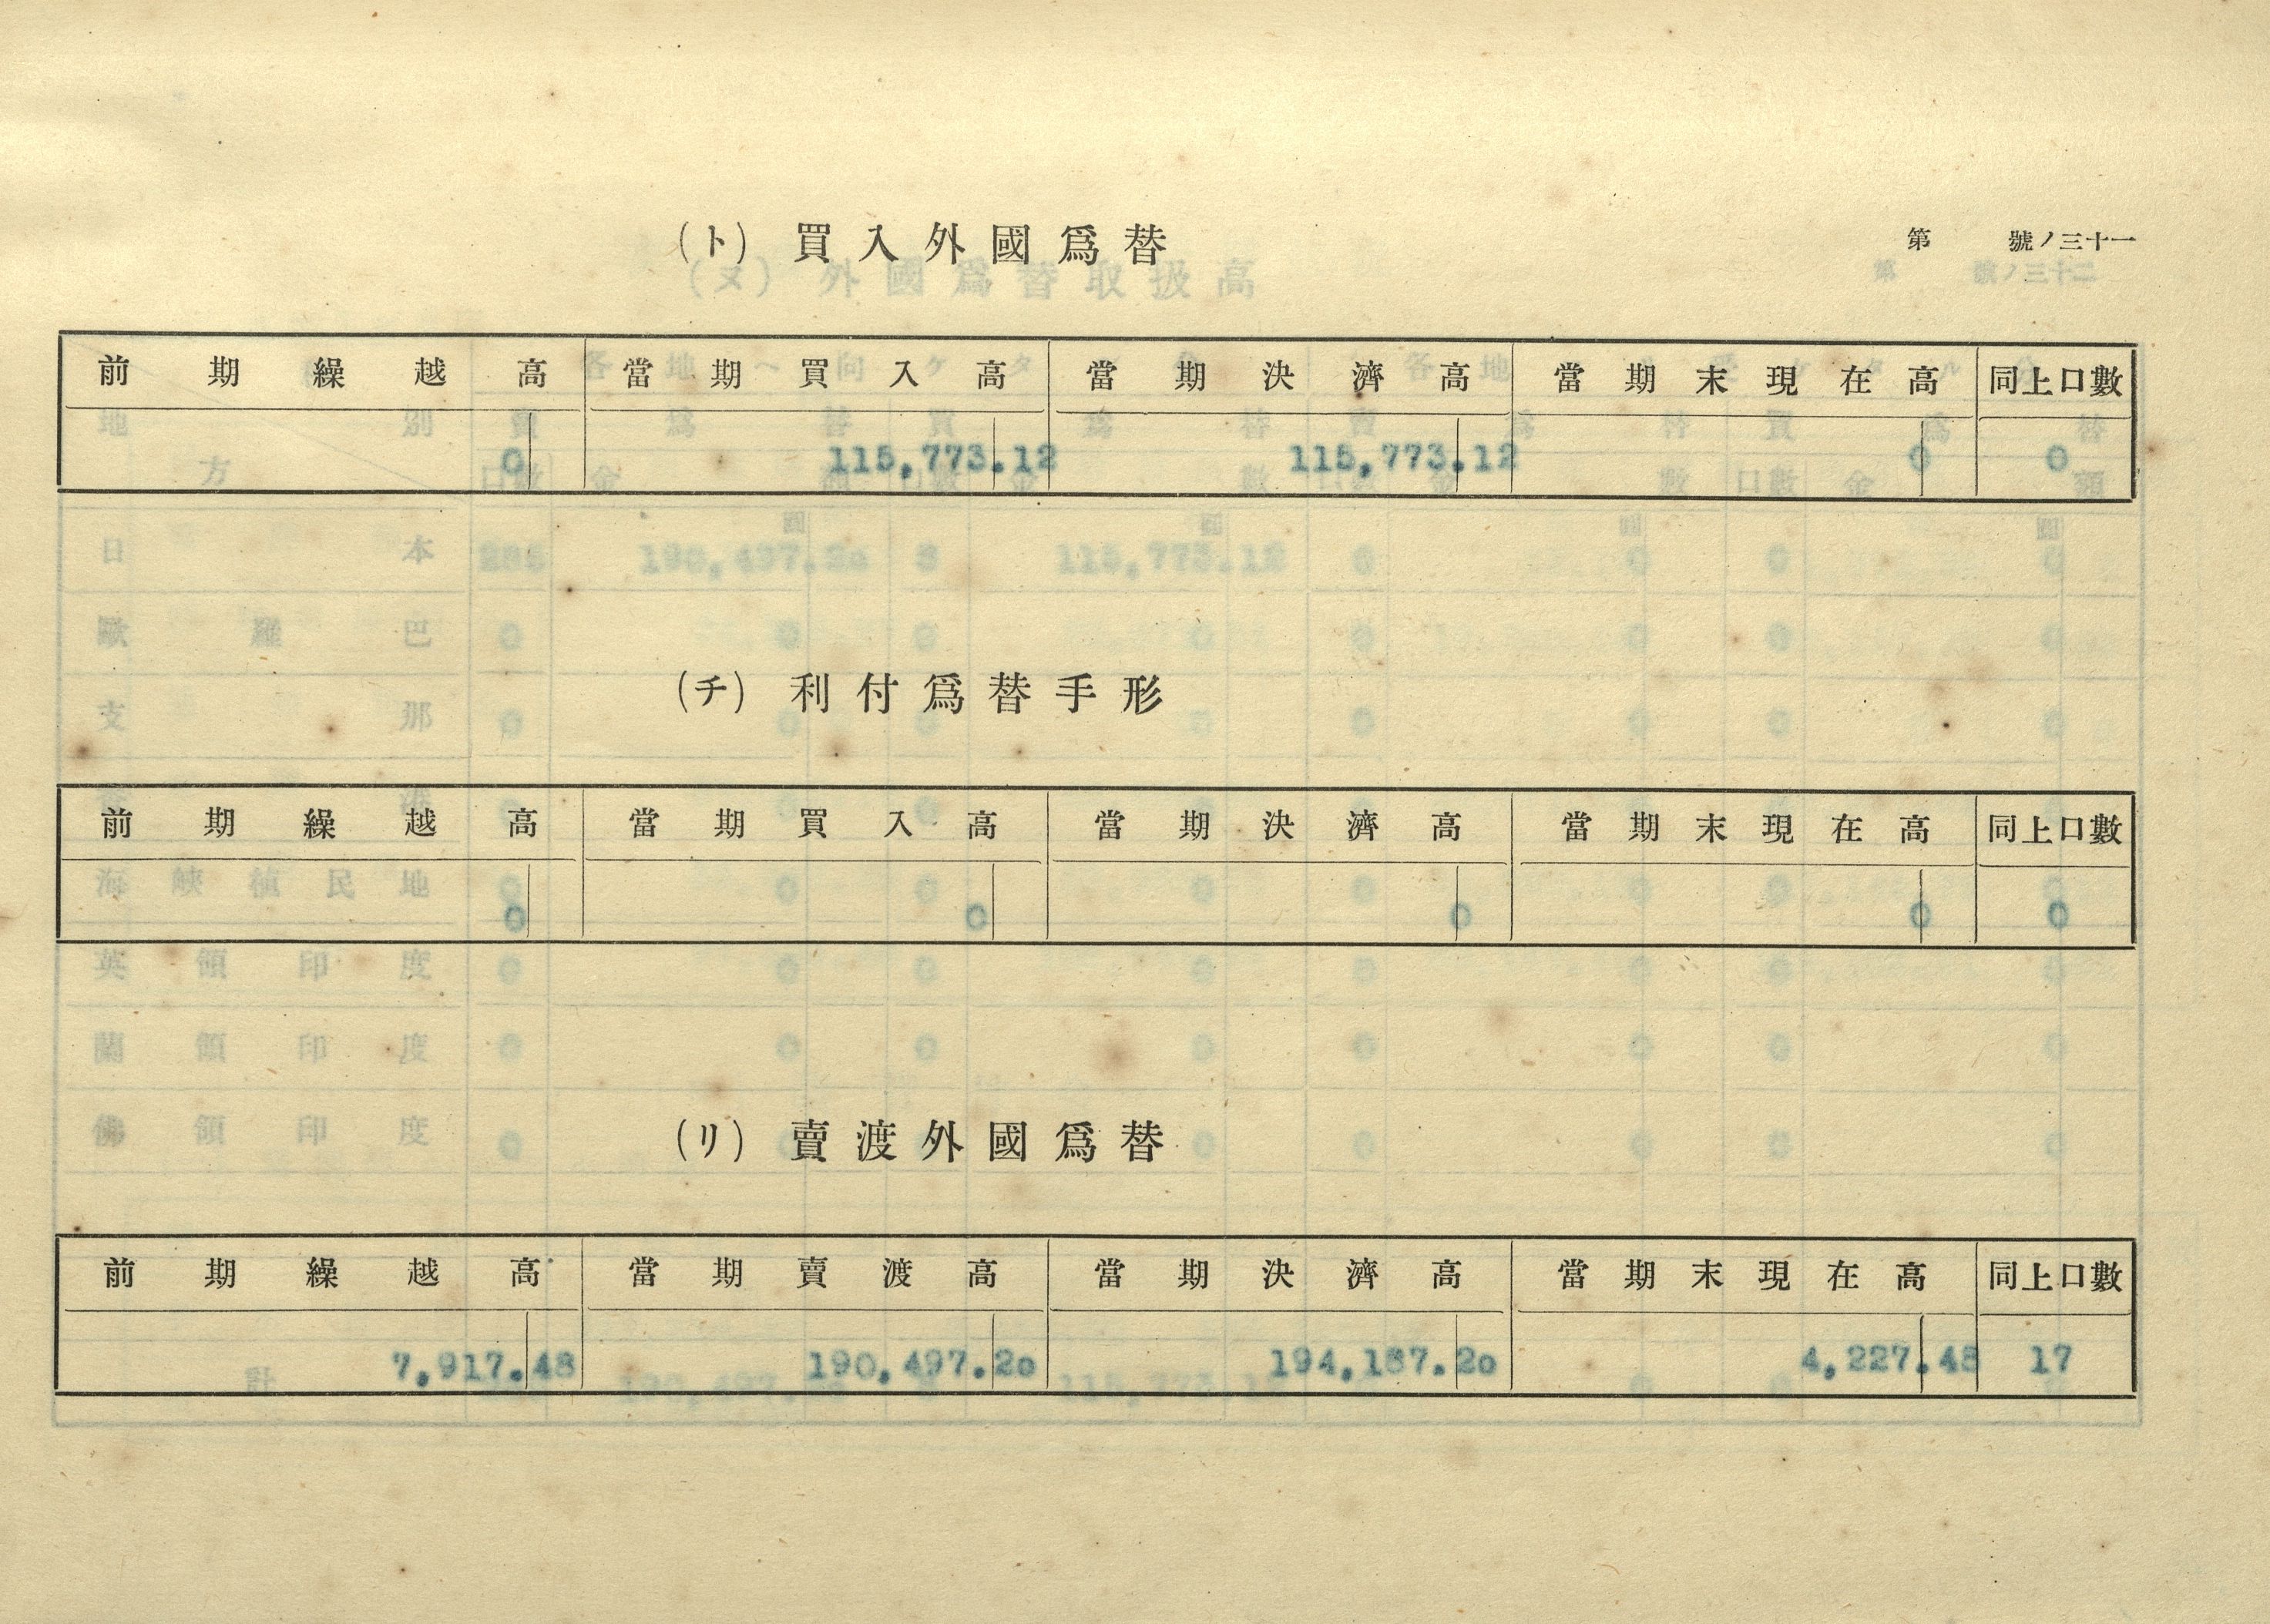 第 號ノ三十一
(ト) 買入外國爲替
前期繰越高 當期買入高 當期決濟高 當期末現在高 同上口數
0 115,773.12 115,773.12 0 0
(チ) 利付爲替手形
前期繰越高 當期買入高 當期決濟高 當期末現在高 同上口數
0 0 0 0 0
(リ) 賣渡外國爲替
前期繰越高 當期賣渡高 當期決濟高 當期末現在高 同上口數
7,917.48 190,497.20 194,187.20 4,227.48 17